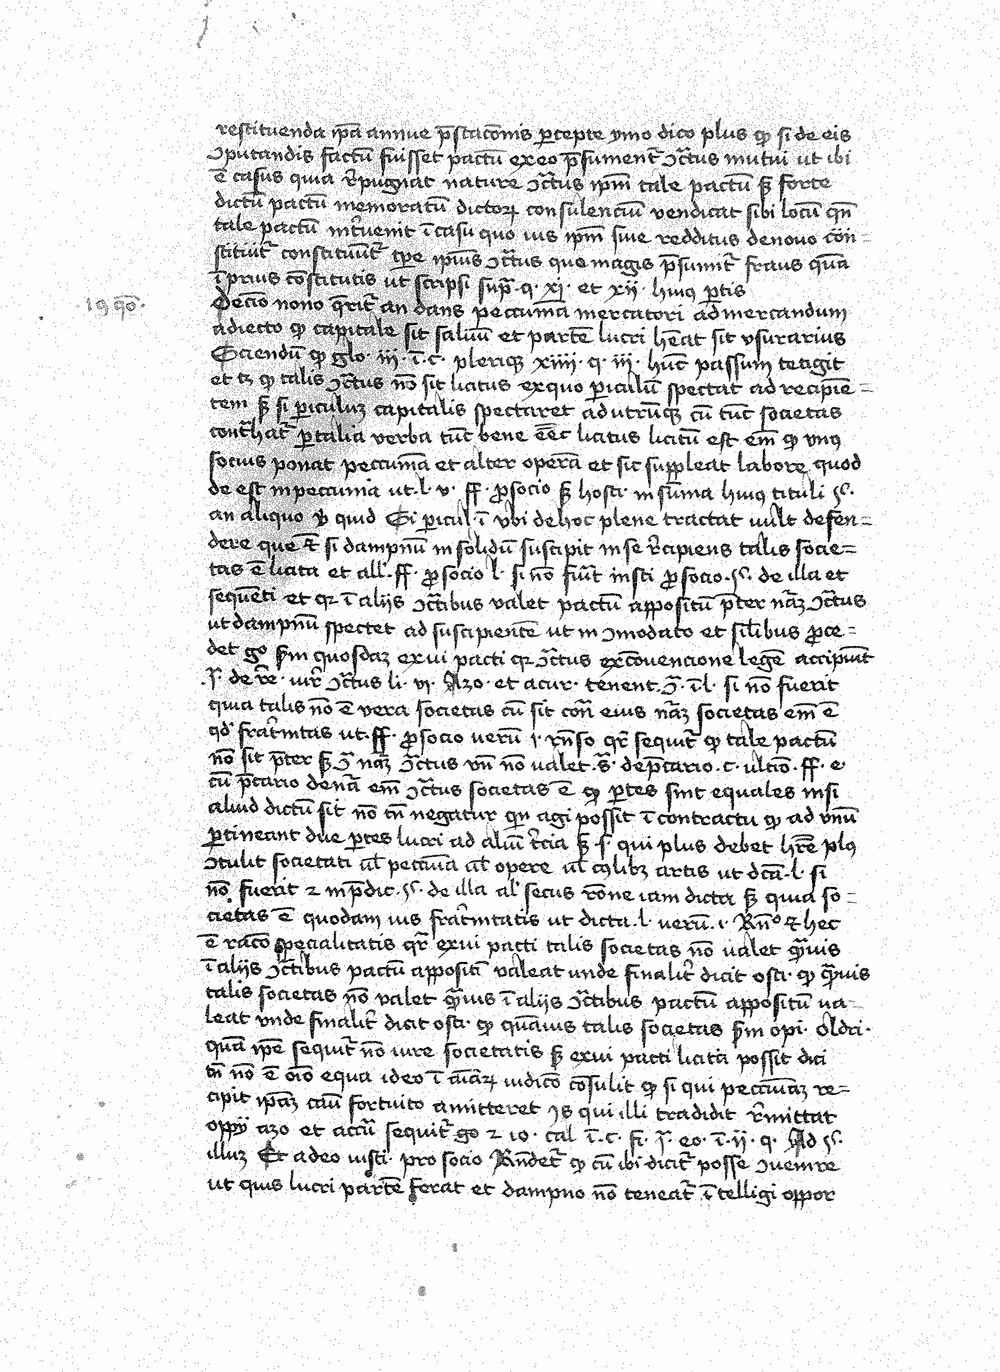 restituenda ipa annue pstaconis pcepte ymo dico plus qp si de eis
ɔputandis factu fuisset pactu ex eo psument ɔctus mutui ut ibi
e casus quia repugnat nature ɔctus ipm tale pactu sz forte
dictu pactu memoratu dictorum consulenciu vendicat sibi locu qn
tale pactu intervenit i casu quo ius ipm sive redditus denovo con=
stituit constituunt tpe ipius ɔctus que magis psumit fraus qua
i prius constitutis ut scripsi supra q. xj. et xij. huius ptis
19 qo.
Decio nono querit an dans peccunia mercatori ad mercandum
adiecto qp capitale sit saluu et parte lucri heat sit vsurarius
Sciendu qp glo. iii. i. c. plerique xiiii. q. iii. hunc passum tetigit
et tz qp talis ɔctus no sit licitus ex quo periculu spectat ad recipie=
tem sz si periculuz capitalis spectaret ad utrunque cu tunc societas
contrahat per talia verba tunc bene eet licitus licitu est em qp vnus
socius ponat peccunia et alter opera et sic suppleat labore quod
de est in peccunia ut. l. v. ff. pro socio sz hosti. in suma huius tituli §.
an aliquo vero quid Si picul. i ubi de hoc plene tractat uult defen=
dere que et si dampnu in solidu suscipit in se recipiens talis socie=
tas e licita et all. ff. pro socio l. si no fuerit insti pro socio. §. de illa et
sequenti et qr i aliis ɔctibus valet pactu appositu preter naz ɔctus
ut dampnu spectet ad suscipiente ut in ɔmodato et silibus proce=
det go scdm quosdaz ex vi pacti qr ɔctus ex convencione lege accipiunt
j. de re. iur. ɔctus li. vi. Azo. et acur. tenent. ɔ. i. l. si no fuerit
quia talis no e vera societas cu sit con eius naz societas em e
qd fraternitas ut. ff. pro socio veru i. rnso qr sequit qp tale pactu
no sit preter sz ɔ naz ɔctus vn no valet. s. de pcario. c. ultio. ff. e.
cu pcario de na em ɔctus societas e qp ptes sint equales nisi
aliud dictu sit no tn negatur quin agi possit i contractu qp ad vnu
ptineant due ptes lucri ad aliu tercia sz. s. qui plus debet hre plus
ɔtulit societati ul peccunia ul opere ul cuslibz artis ut dca. l. si
no. fuerit et in pdic. §. de illa al secus rone iam dicta sz quia so=
cietas e quodam ius fraternitatis ut dicta. l. veru. i. Rno et hec
e racio specialitatis qr ex vi pacti talis societas no valet quis
i aliis ɔctibus pactu appositu valeat unde finaliter dicit osti. qp quis
talis societas no valet quis i alijs ɔctibus pactu appositu va=
leat vnde finaliter dicit osti. qp quamuis talis societas scdm opi. oldri.
qua ipe sequit no iure societatis sz ex vi pacti licita possit dici
tn no e oio equa ideo i aiarum iudicio consulit qp si qui peccuniaz re=
cipit ipaz casu fortuito amitteret is qui illi tradidit remittat
oppij azo et accu sequit go et io. cal. i. c. fi. j. eo. i. ij. q. Ad §.
illuz Et adeo insti. pro socio Rndet qp cu ibi dicit posse ɔvenire
ut quis lucri parte ferat et dampno no teneat i telligi oppor